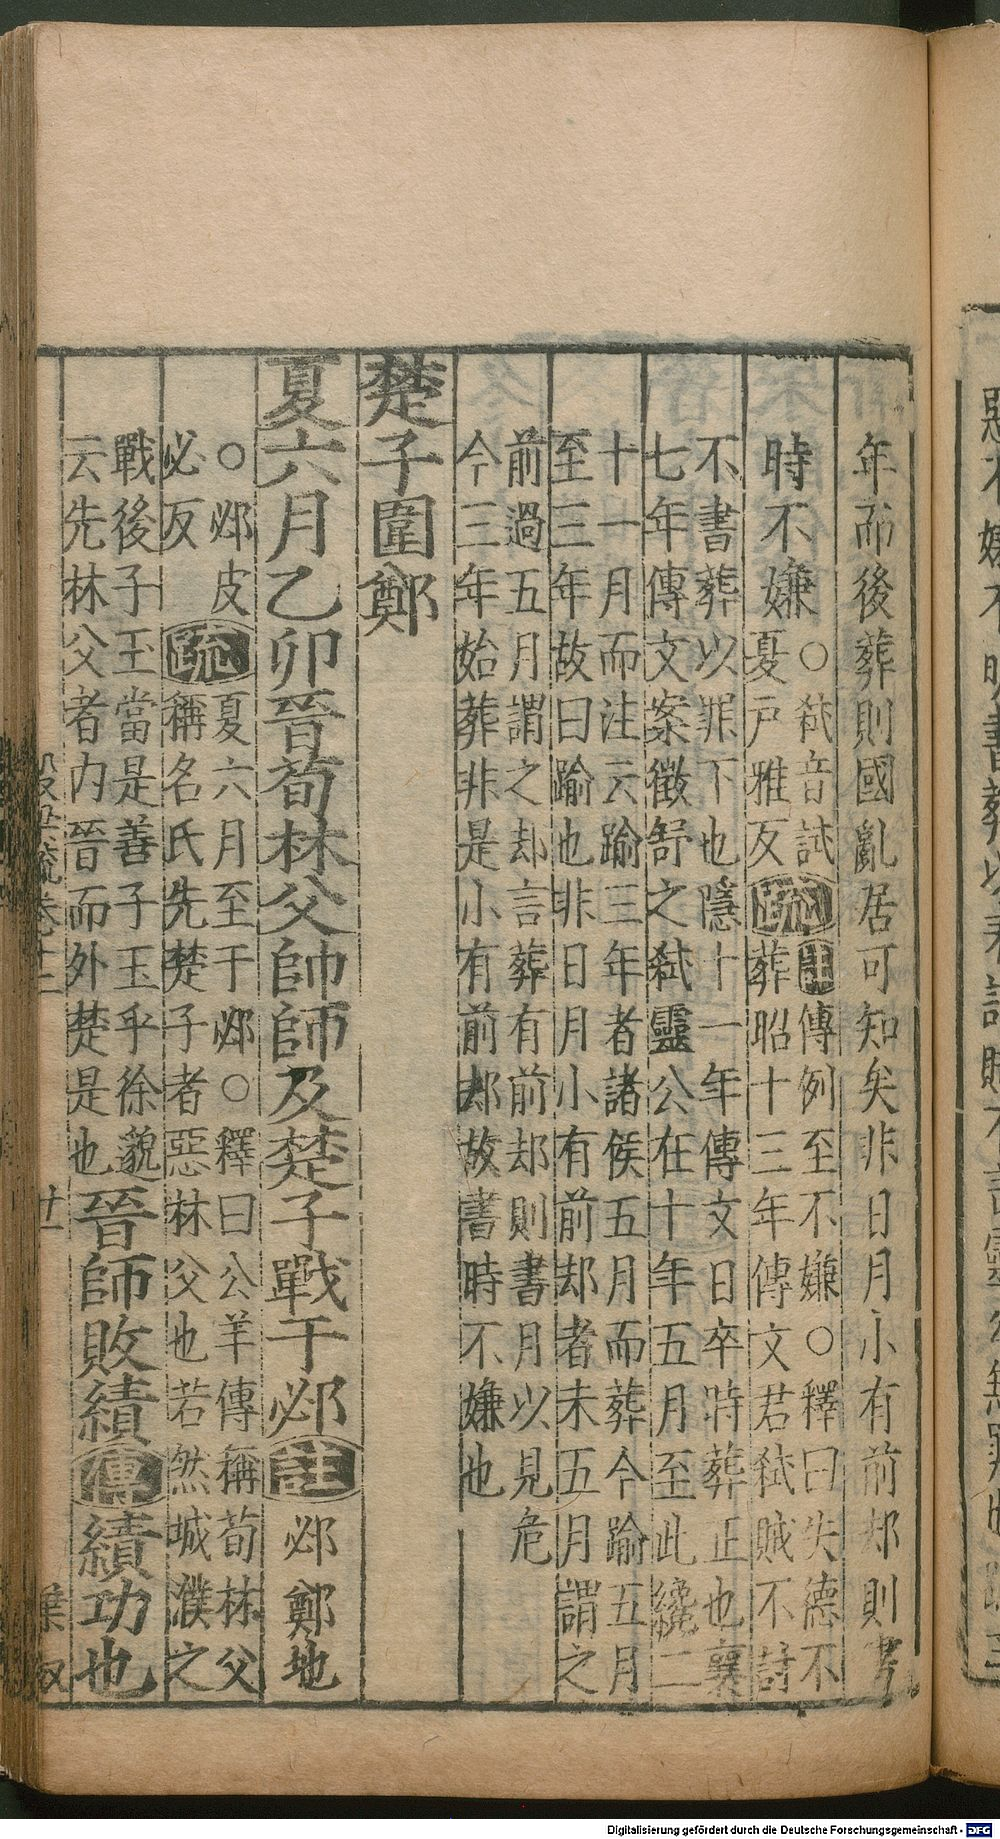 年而後葬則國亂居可知矣非日月小有前却則書
時不嫌
○弑音試
夏戶雅反
疏
註傳例至不嫌○釋曰失德不
葬昭十三年傳文君弑賊不討
不書葬以罪下也隱十一年傳文日卒時葬正也襄
七年傳文案徵舒之弑靈公在十年五月至此纔二
十一月而注云踰三年者諸侯五月而葬今踰五月
至三年故曰踰也非日月小有前却者未五月謂之
前過五月謂之却言葬有前却則書月以見危
今三年始葬非是小有前却故書時不嫌也
楚子圍鄭
夏六月乙卯晉荀林父帥師及楚子戰于邲
註
邲鄭地
○邲皮
必反
疏
夏六月至于邲○釋曰公羊傳稱荀林父
稱名氏先楚子者惡林父也若然城濮之
戰後子玉當是善子玉乎徐邈
云先林父者內晉而外楚是也
晉師敗績
傳
績功也
穀梁疏卷十二
廿一
Digitalisierung gefördert durch die Deutsche Forschungsgemeinschaft - DFG